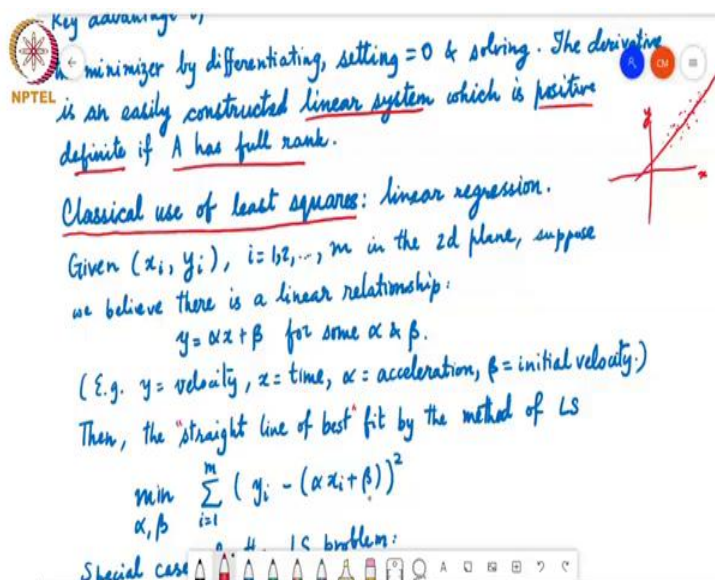 Key advantage
NPTEL
minimizer by differentiating, setting =0 & solving. The derivative
is an easily constructed linear system which is positive
definite if A has full rank.
y
x
CM
Classical use of least squares: linear regression.
Given (xi, yi), i=1,2,..., m in the 2d plane, suppose
we believe there is a linear relationship:
y = αx + β for some α & β.
(E.g. y = velocity, x = time, α = acceleration, β = initial velocity.)
Then, the "straight line of best" fit by the method of LS
min α, β Σ i=1 m ( yi - (α xi + β))²
Special case LS problem:
A